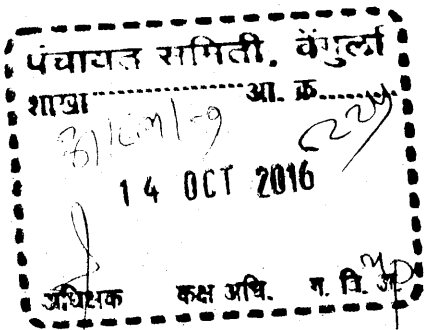 पंचायत समिती, वेंगुर्ला
शाखा .................. आ. क्र. ..........
14 OCT 2016
अधिक्षक कक्ष अधि. ग. वि. अ